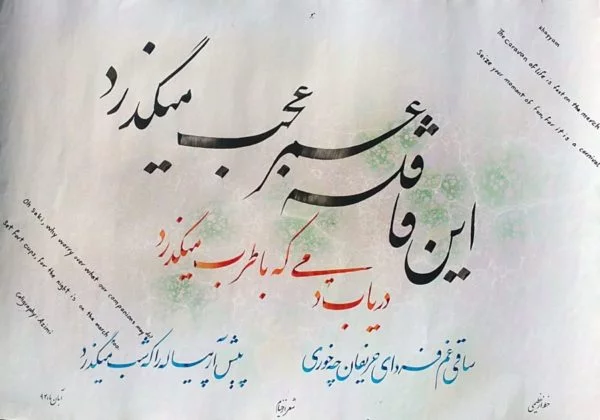 هو
این قافله عمر عجب میگذرد
دریاب دمی که با طرب میگذرد
ساقی غم فردای حریفان چه خوری
پیش آر پیاله را که شب میگذرد
Khayyam
The caravan of life is fast on the march
Seize your moment of fun, for it is a carnical
Oh Saki, why worry over what our companions may do!
Set fort cups, for the night is on the march too.
Caligraphy: Azimi
شعر از خیام